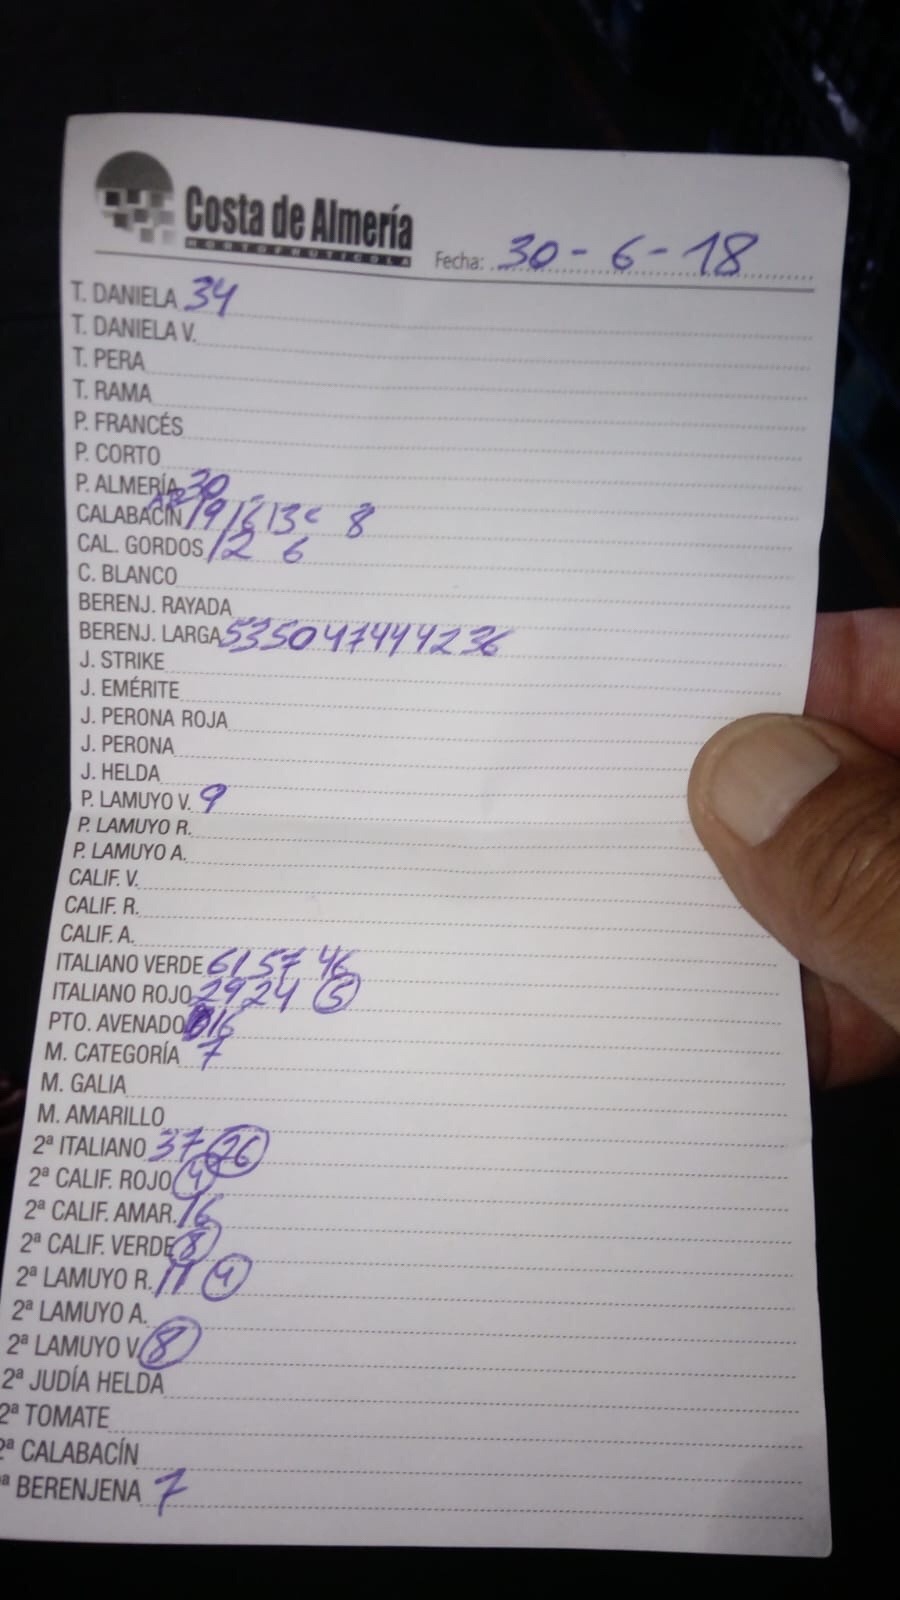 Costa de Almería
HORTOFRUTICOLA
Fecha: 30-6-18
T. DANIELA 34
T. DANIELA V.
T. PERA
T. RAMA
P. FRANCÉS
P. CORTO
P. ALMERÍA 30
CALABACÍN 19 16 13 8
CAL. GORDOS 12 6
C. BLANCO
BERENJ. RAYADA
BERENJ. LARGA 53 50 47 44 42 36
J. STRIKE
J. EMÉRITE
J. PERONA ROJA
J. PERONA
J. HELDA
P. LAMUYO V. 9
P. LAMUYO R.
P. LAMUYO A.
CALIF. V.
CALIF. R.
CALIF. A.
ITALIANO VERDE 61 57 46
ITALIANO ROJO 29 24 5
PTO. AVENADO 16
M. CATEGORÍA 7
M. GALIA
M. AMARILLO
2ª ITALIANO 37 26
2ª CALIF. ROJO 4
2ª CALIF. AMAR. 16
2ª CALIF. VERDE 8
2ª LAMUYO R. 11 4
2ª LAMUYO A.
2ª LAMUYO V. 8
2ª JUDÍA HELDA
2ª TOMATE
2ª CALABACÍN
ª BERENJENA 7